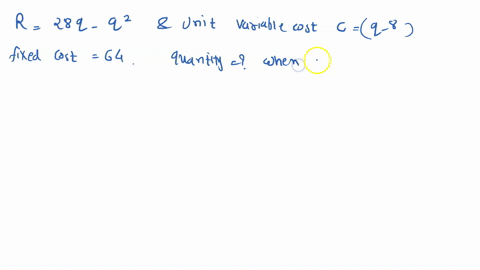 R = 28q - q² & Unit variable cost C = (q-8)
fixed cost = 64. quantity =? when